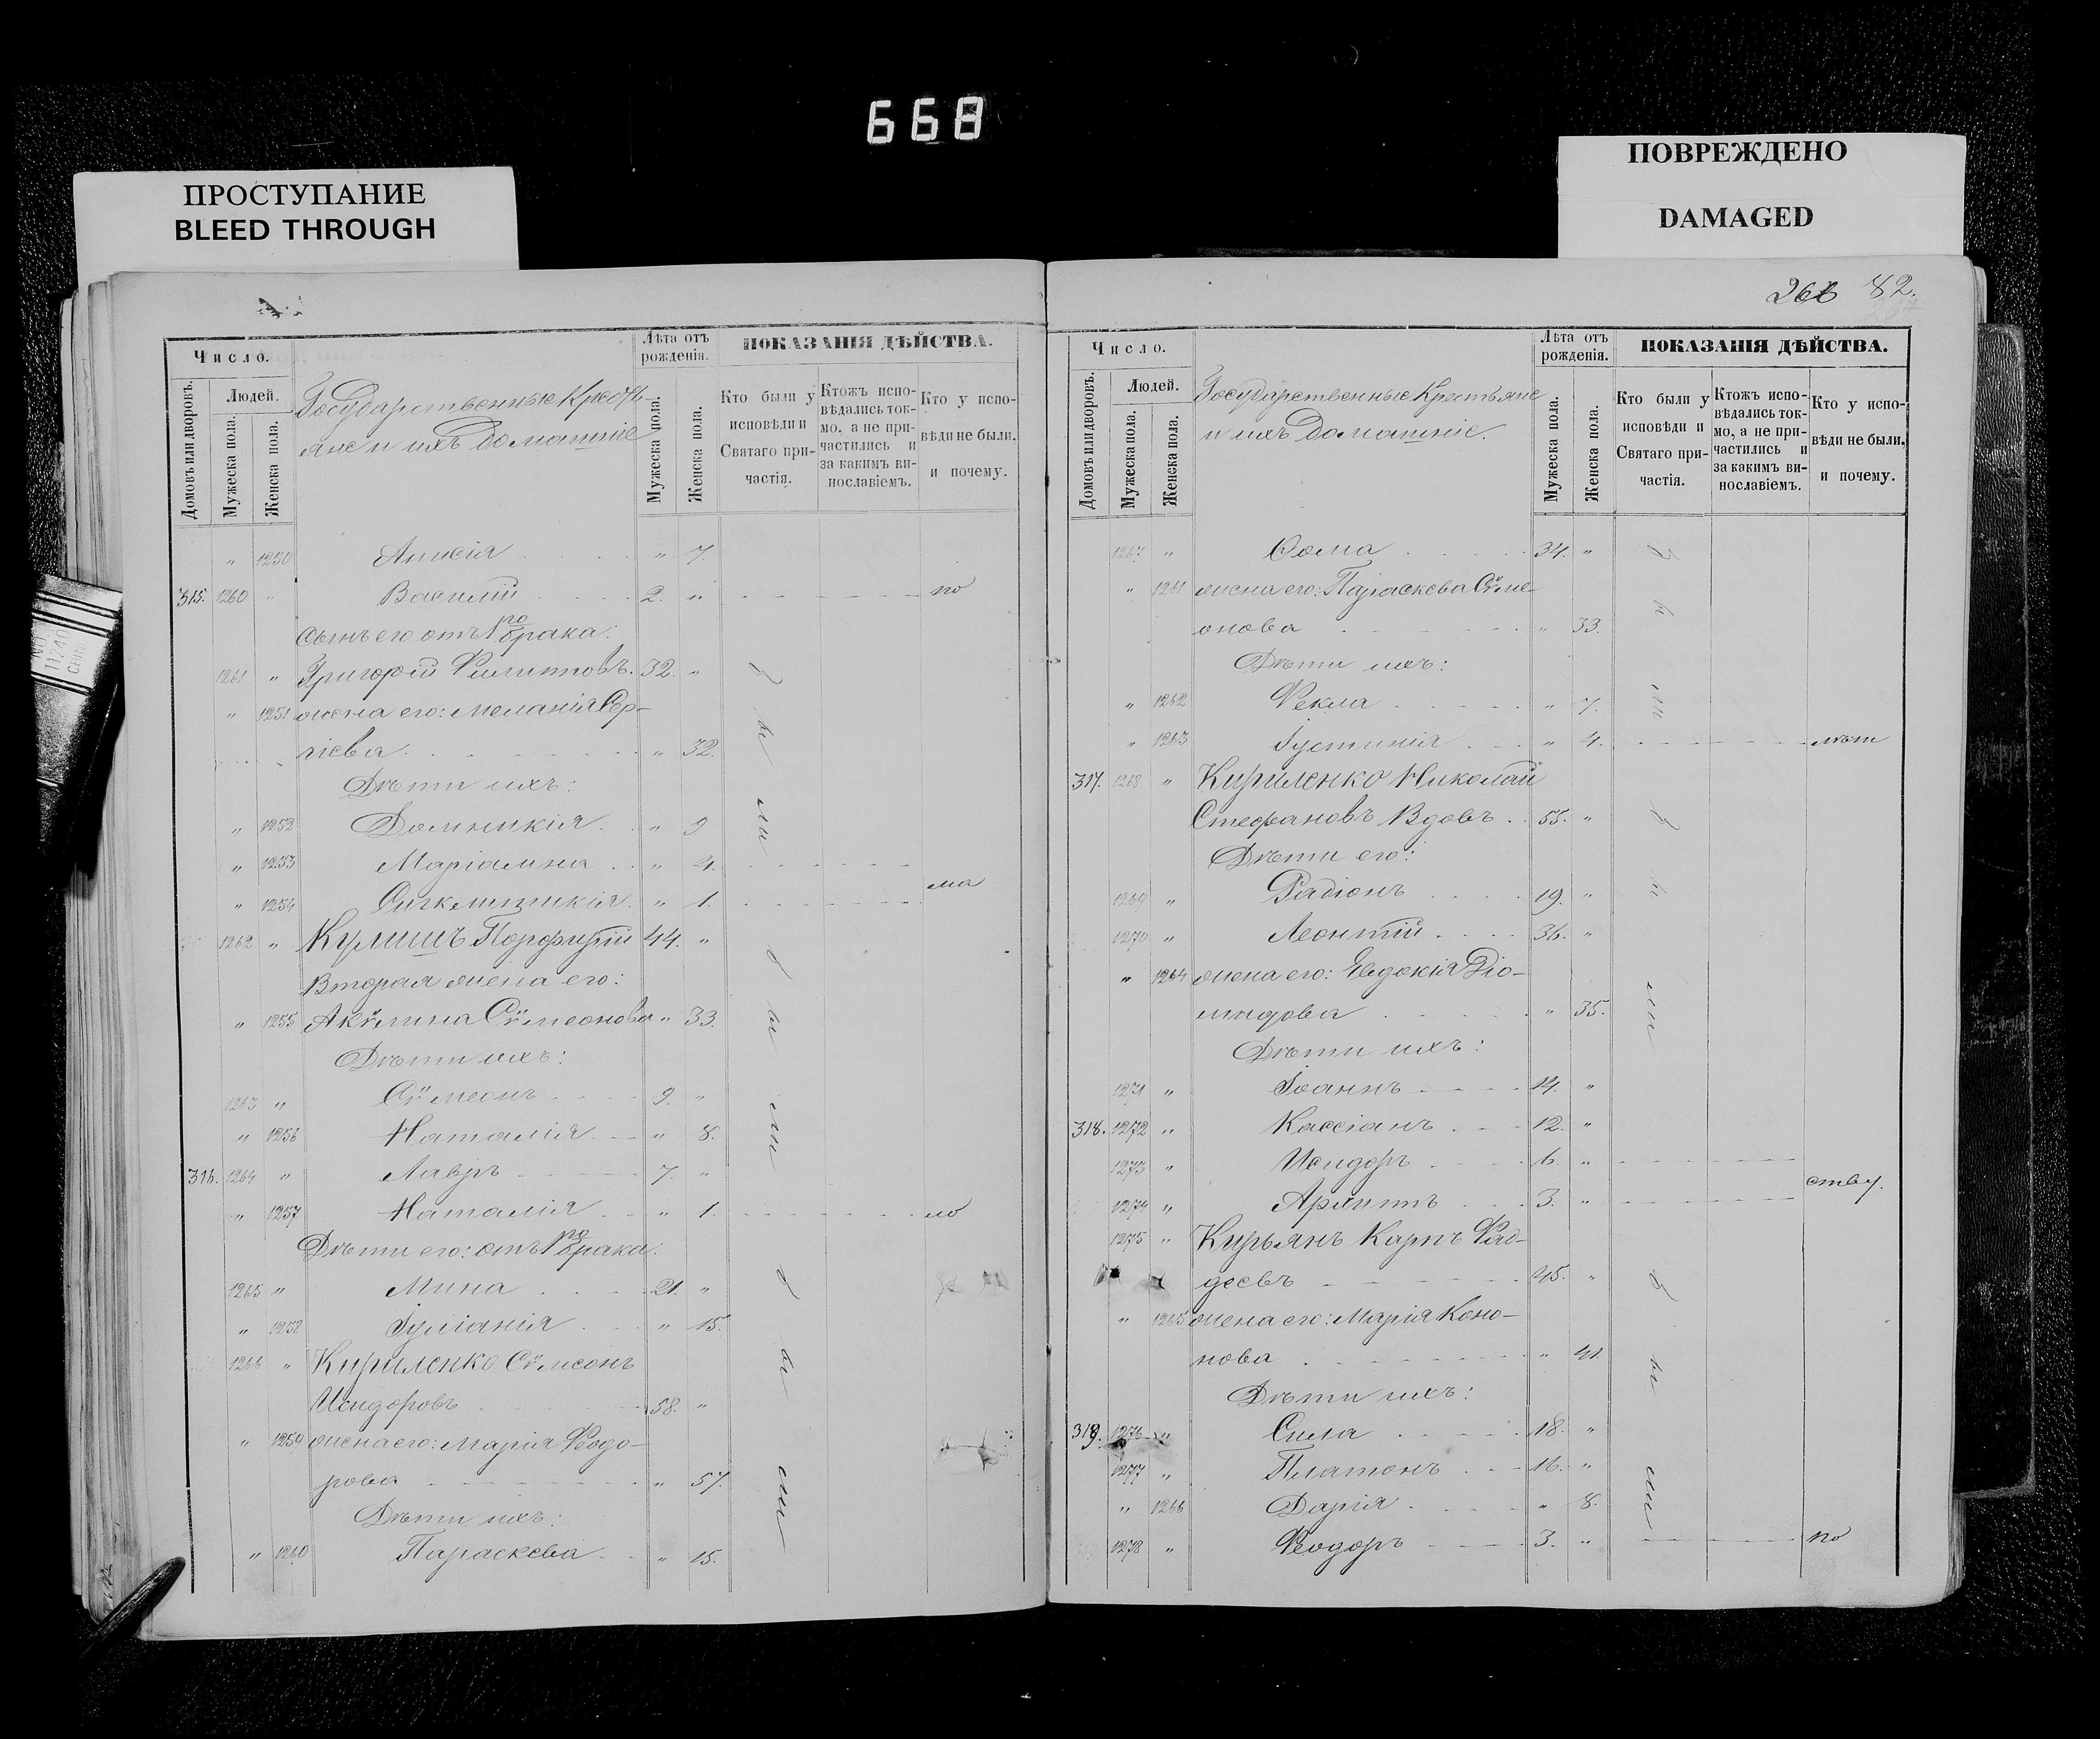 668
ПРОСТУПАНИЕ
BLEED THROUGH
ПОВРЕЖДЕНО
DAMAGED
Число.
Домовъ или дворовъ.
Людей.
Мужеска пола.
Женска пола.
Государственные Кресть-
яне и ихъ Домашніе
Лѣта отъ рожденія.
Мужеска пола.
Женска пола.
ПОКАЗАНІЯ ДѢЙСТВА.
Кто были у исповѣди и Святаго при-частія.
Ктожъ испо-вѣдались ток-мо, а не при-частились и за какимъ ви-нославіемъ.
Кто у испо-вѣди не были. и почему.
" 1250 Анисія " 7.
315. 1260 " Василій 2. " по
сынъ его отъ 1го брака:
1261 " Григорій Филипповъ. 32. "
" 1251 жена его: Меланія Сер-
гіева " 32.
Дѣти ихъ:
" 1252 Домникія " 9
" 1253 Маріамна " 4.
" 1254 " 1. ма
1262 " Кулишъ Порфирій 44. "
Вторая жена его:
" 1255 Акѵлина Сѵмеонова " 33.
Дѣти ихъ:
1263 " Сѵмеонъ 9. "
" 1256 Наталія " 8.
316. 1264 " Лавръ 7. "
" 1257 Наталія " 1. ло
Дѣти его: отъ 1го брака:
1265 " Мина 21. "
" 1258 Іуліанія " 15.
1266 " Кириленко Сѵмеонъ
Исидоровъ 58. "
" 1259 жена его: Марія Ѳеодо-
рова " 57.
Дѣти ихъ:
" 1260 Параскева " 15.
были
были
были
266 82.
Число.
Домовъ или дворовъ.
Людей.
Мужеска пола.
Женска пола.
Государственные Крестьяне
и ихъ Домашніе.
Лѣта отъ рожденія.
Мужеска пола.
Женска пола.
ПОКАЗАНІЯ ДѢЙСТВА.
Кто были у исповѣди и Святаго при-частія.
Ктожъ испо-вѣдались ток-мо, а не при-частились и за какимъ ви-нославіемъ.
Кто у испо-вѣди не были. и почему.
1267 " Ѳома 34. "
" 1261 жена его: Параскева Сѵме-
онова " 33.
Дѣти ихъ:
" 1262 Ѳекла " 7.
" 1263 Іустинія " 4. лѣт
317. 1268 " Кириленко Николай
Стефановъ Вдовъ 55. "
Дѣти его:
1269 " Радіонъ 19. "
1270 " Леонтій 36. "
" 1264 жена его: Евдокія Діо-
мидова " 35.
Дѣти ихъ:
1271 " Іоаннъ 14. "
318. 1272 " Кассіанъ 12. "
1273 " Исидоръ 6. "
1274 " Архипъ 3. " ству.
1275 " Кирьянъ Карпъ Ѳад-
деевъ 45. "
" 1265 жена его: Марія Коно-
нова " 41.
Дѣти ихъ:
319. 1276 " Сила 18. "
1277 " Платонъ 16. "
" 1266 Дарія " 8.
1278 " Ѳеодоръ 3. " по
были
были
были